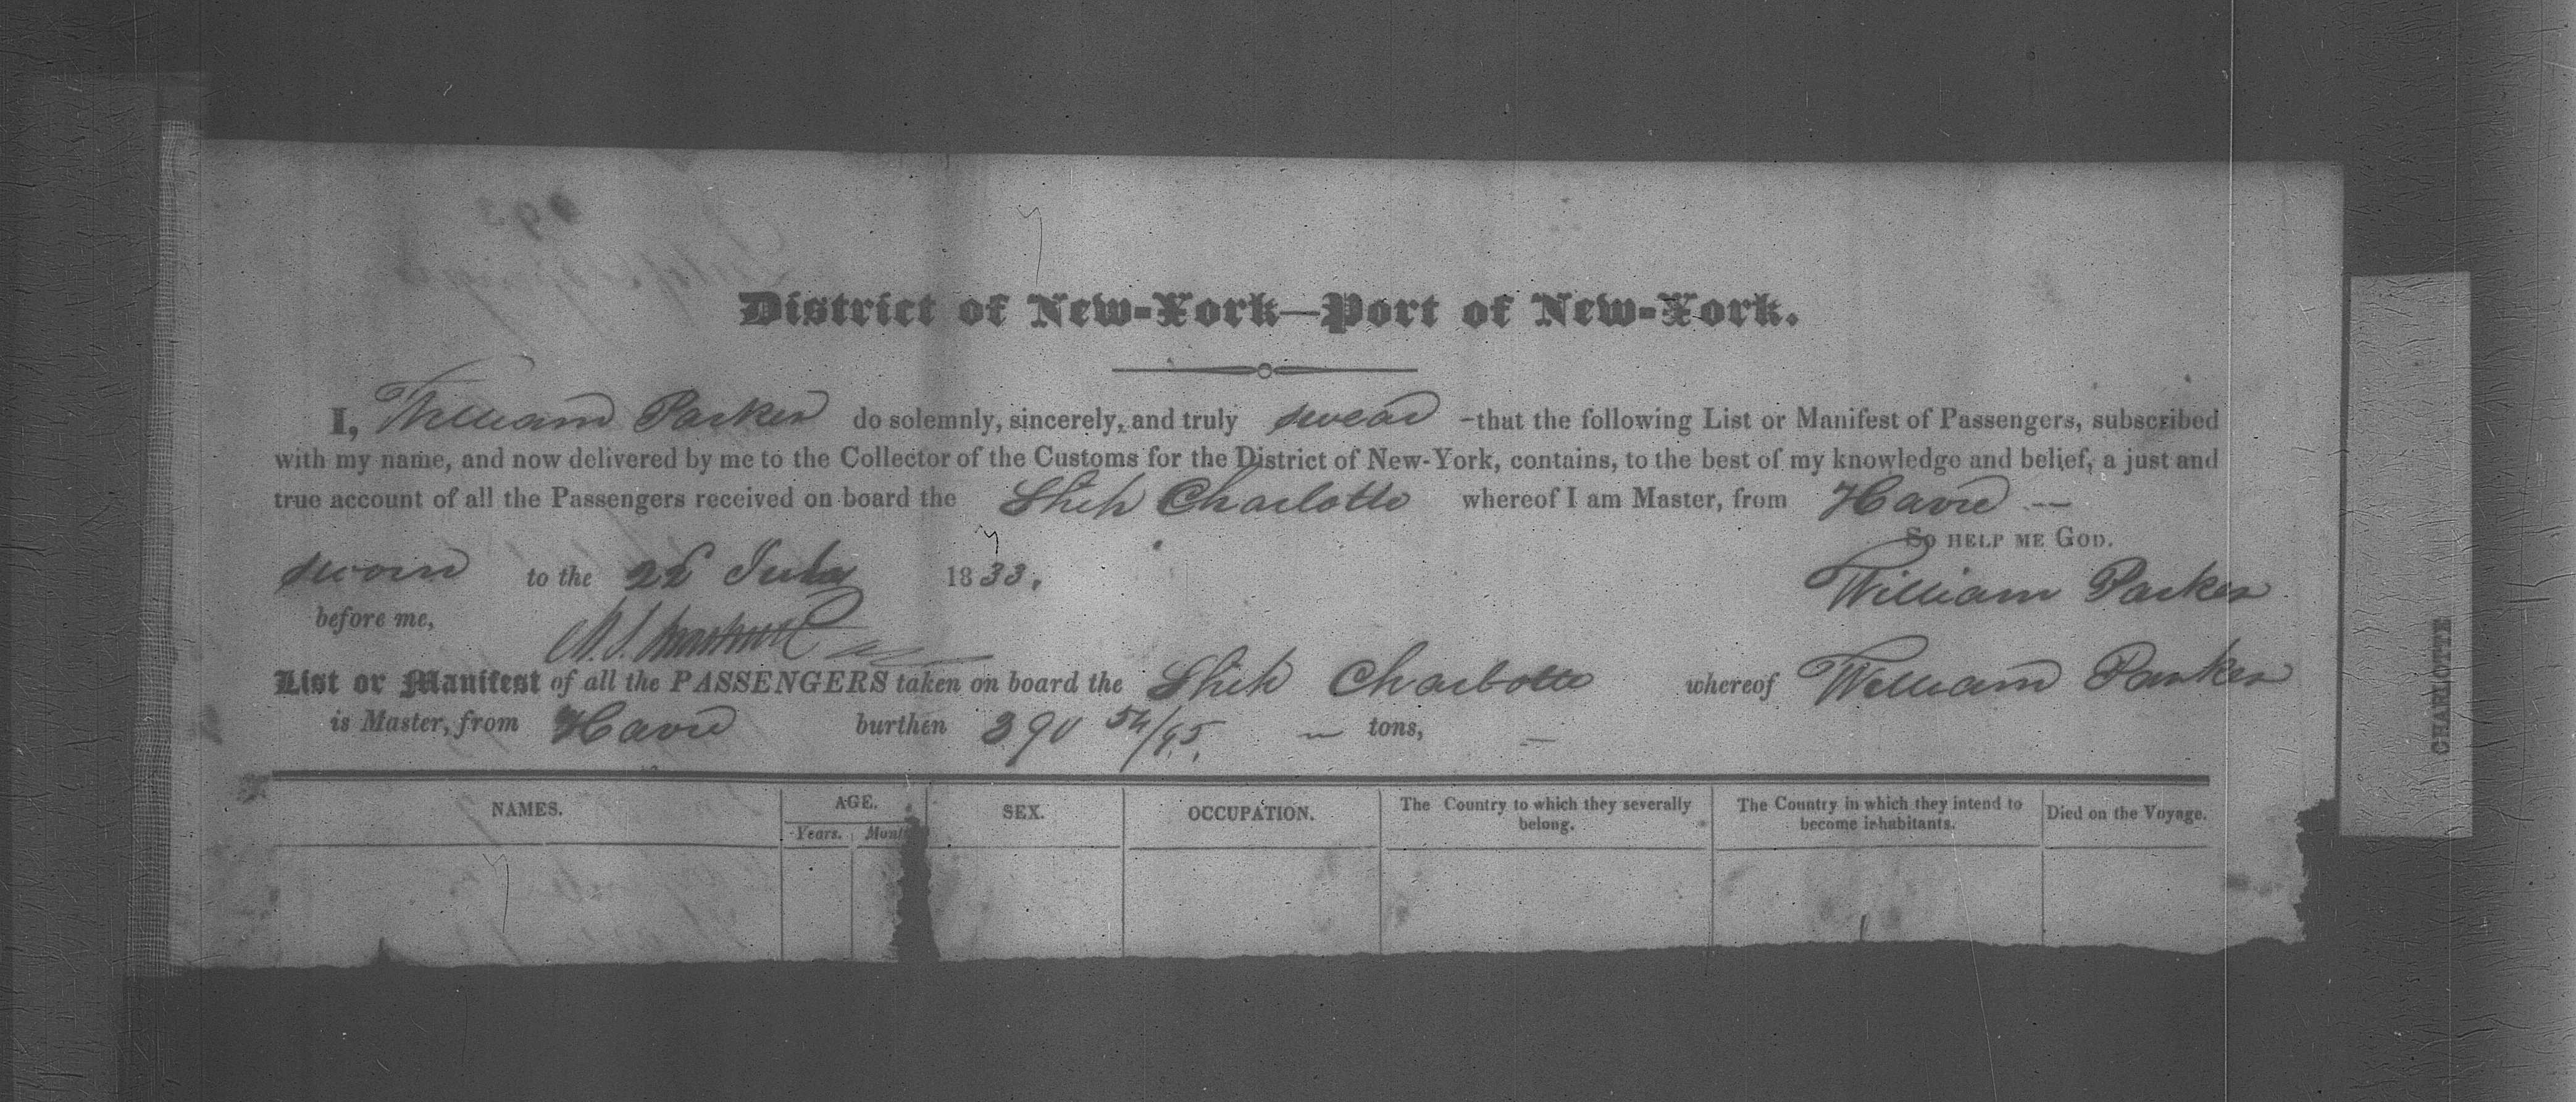 District of New-York—Port of New-York.
I, William Parker do solemnly, sincerely, and truly swear -that the following List or Manifest of Passengers, subscribed
with my name, and now delivered by me to the Collector of the Customs for the District of New-York, contains, to the best of my knowledge and belief, a just and
true account of all the Passengers received on board the Ship Charlotte whereof I am Master, from Havre —
So help me God.
sworn to the 22 July 1833.
William Parker
before me,
List or Manifest of all the PASSENGERS taken on board the Ship Charlotte whereof William Parker
is Master, from Havre burthen 390 54/95. — tons, —
NAMES. AGE. SEX. OCCUPATION. The Country to which they severally belong. The Country in which they intend to become inhabitants. Died on the Voyage.
Years. Mont
CHARLOTTE